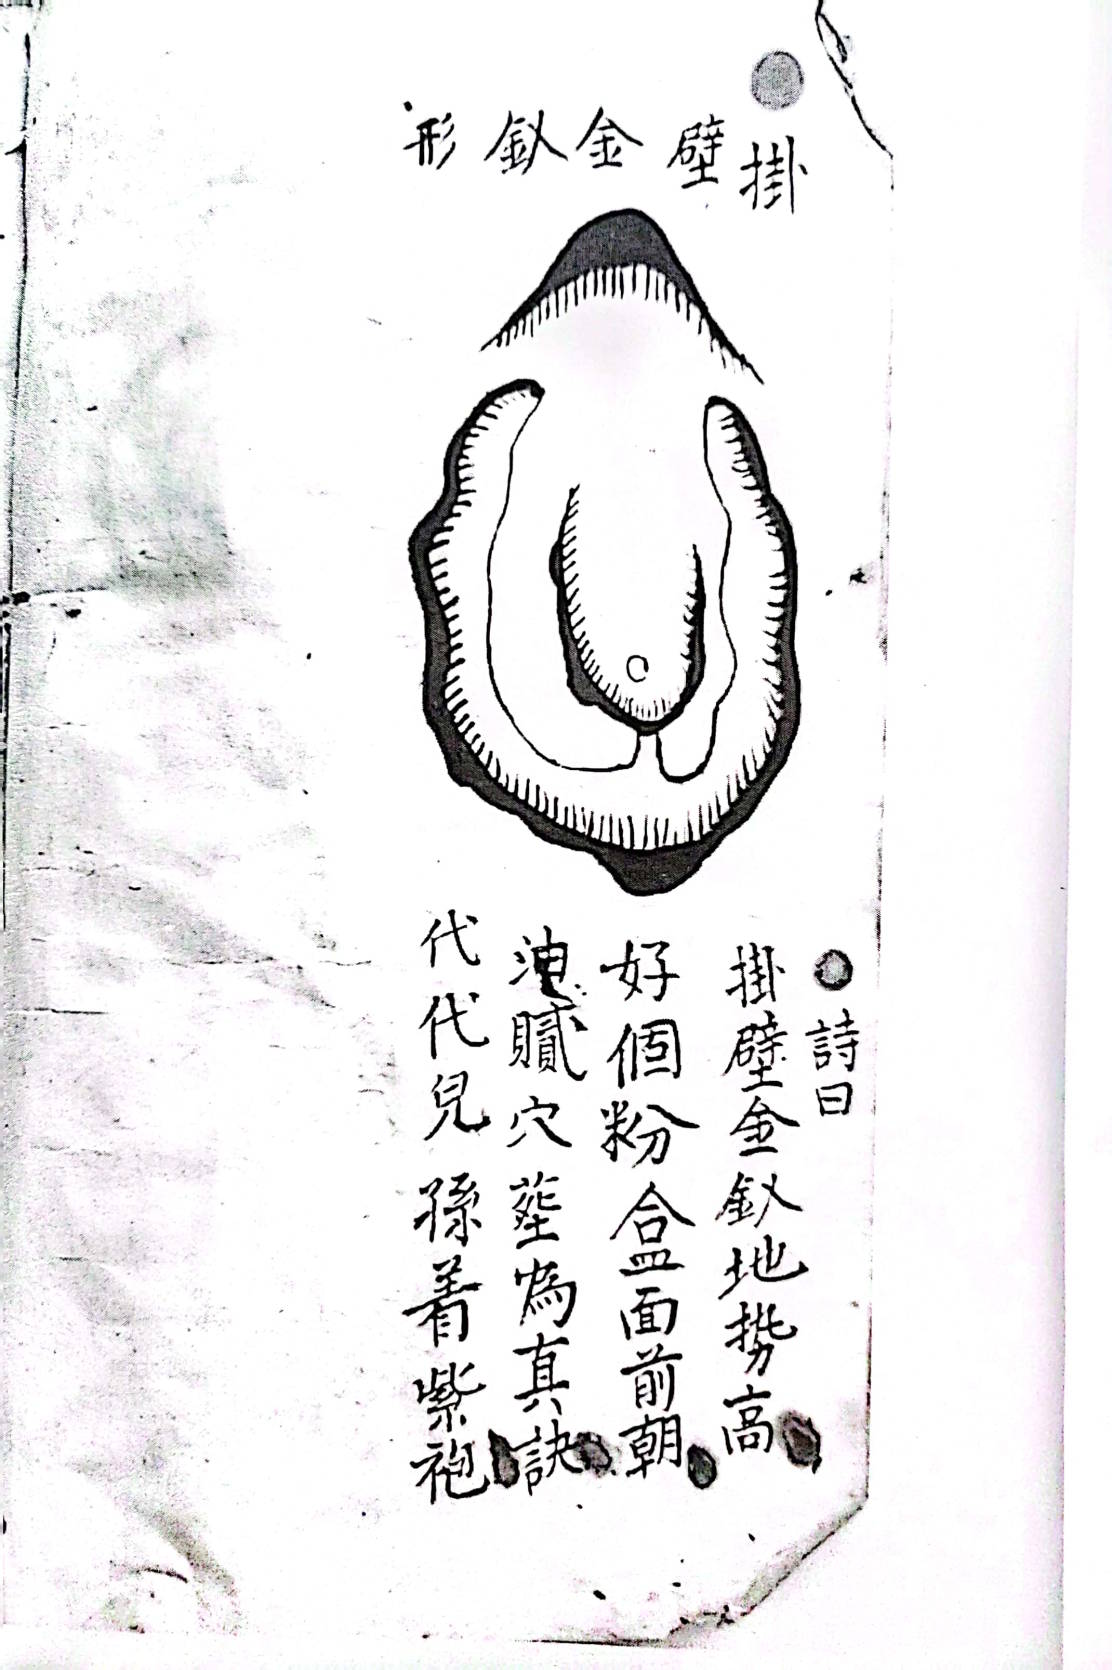 掛壁金釵形
詩曰
掛壁金釵地势高
好個粉盒面前朝
穴塟為真訣
代代兒孫着紫袍